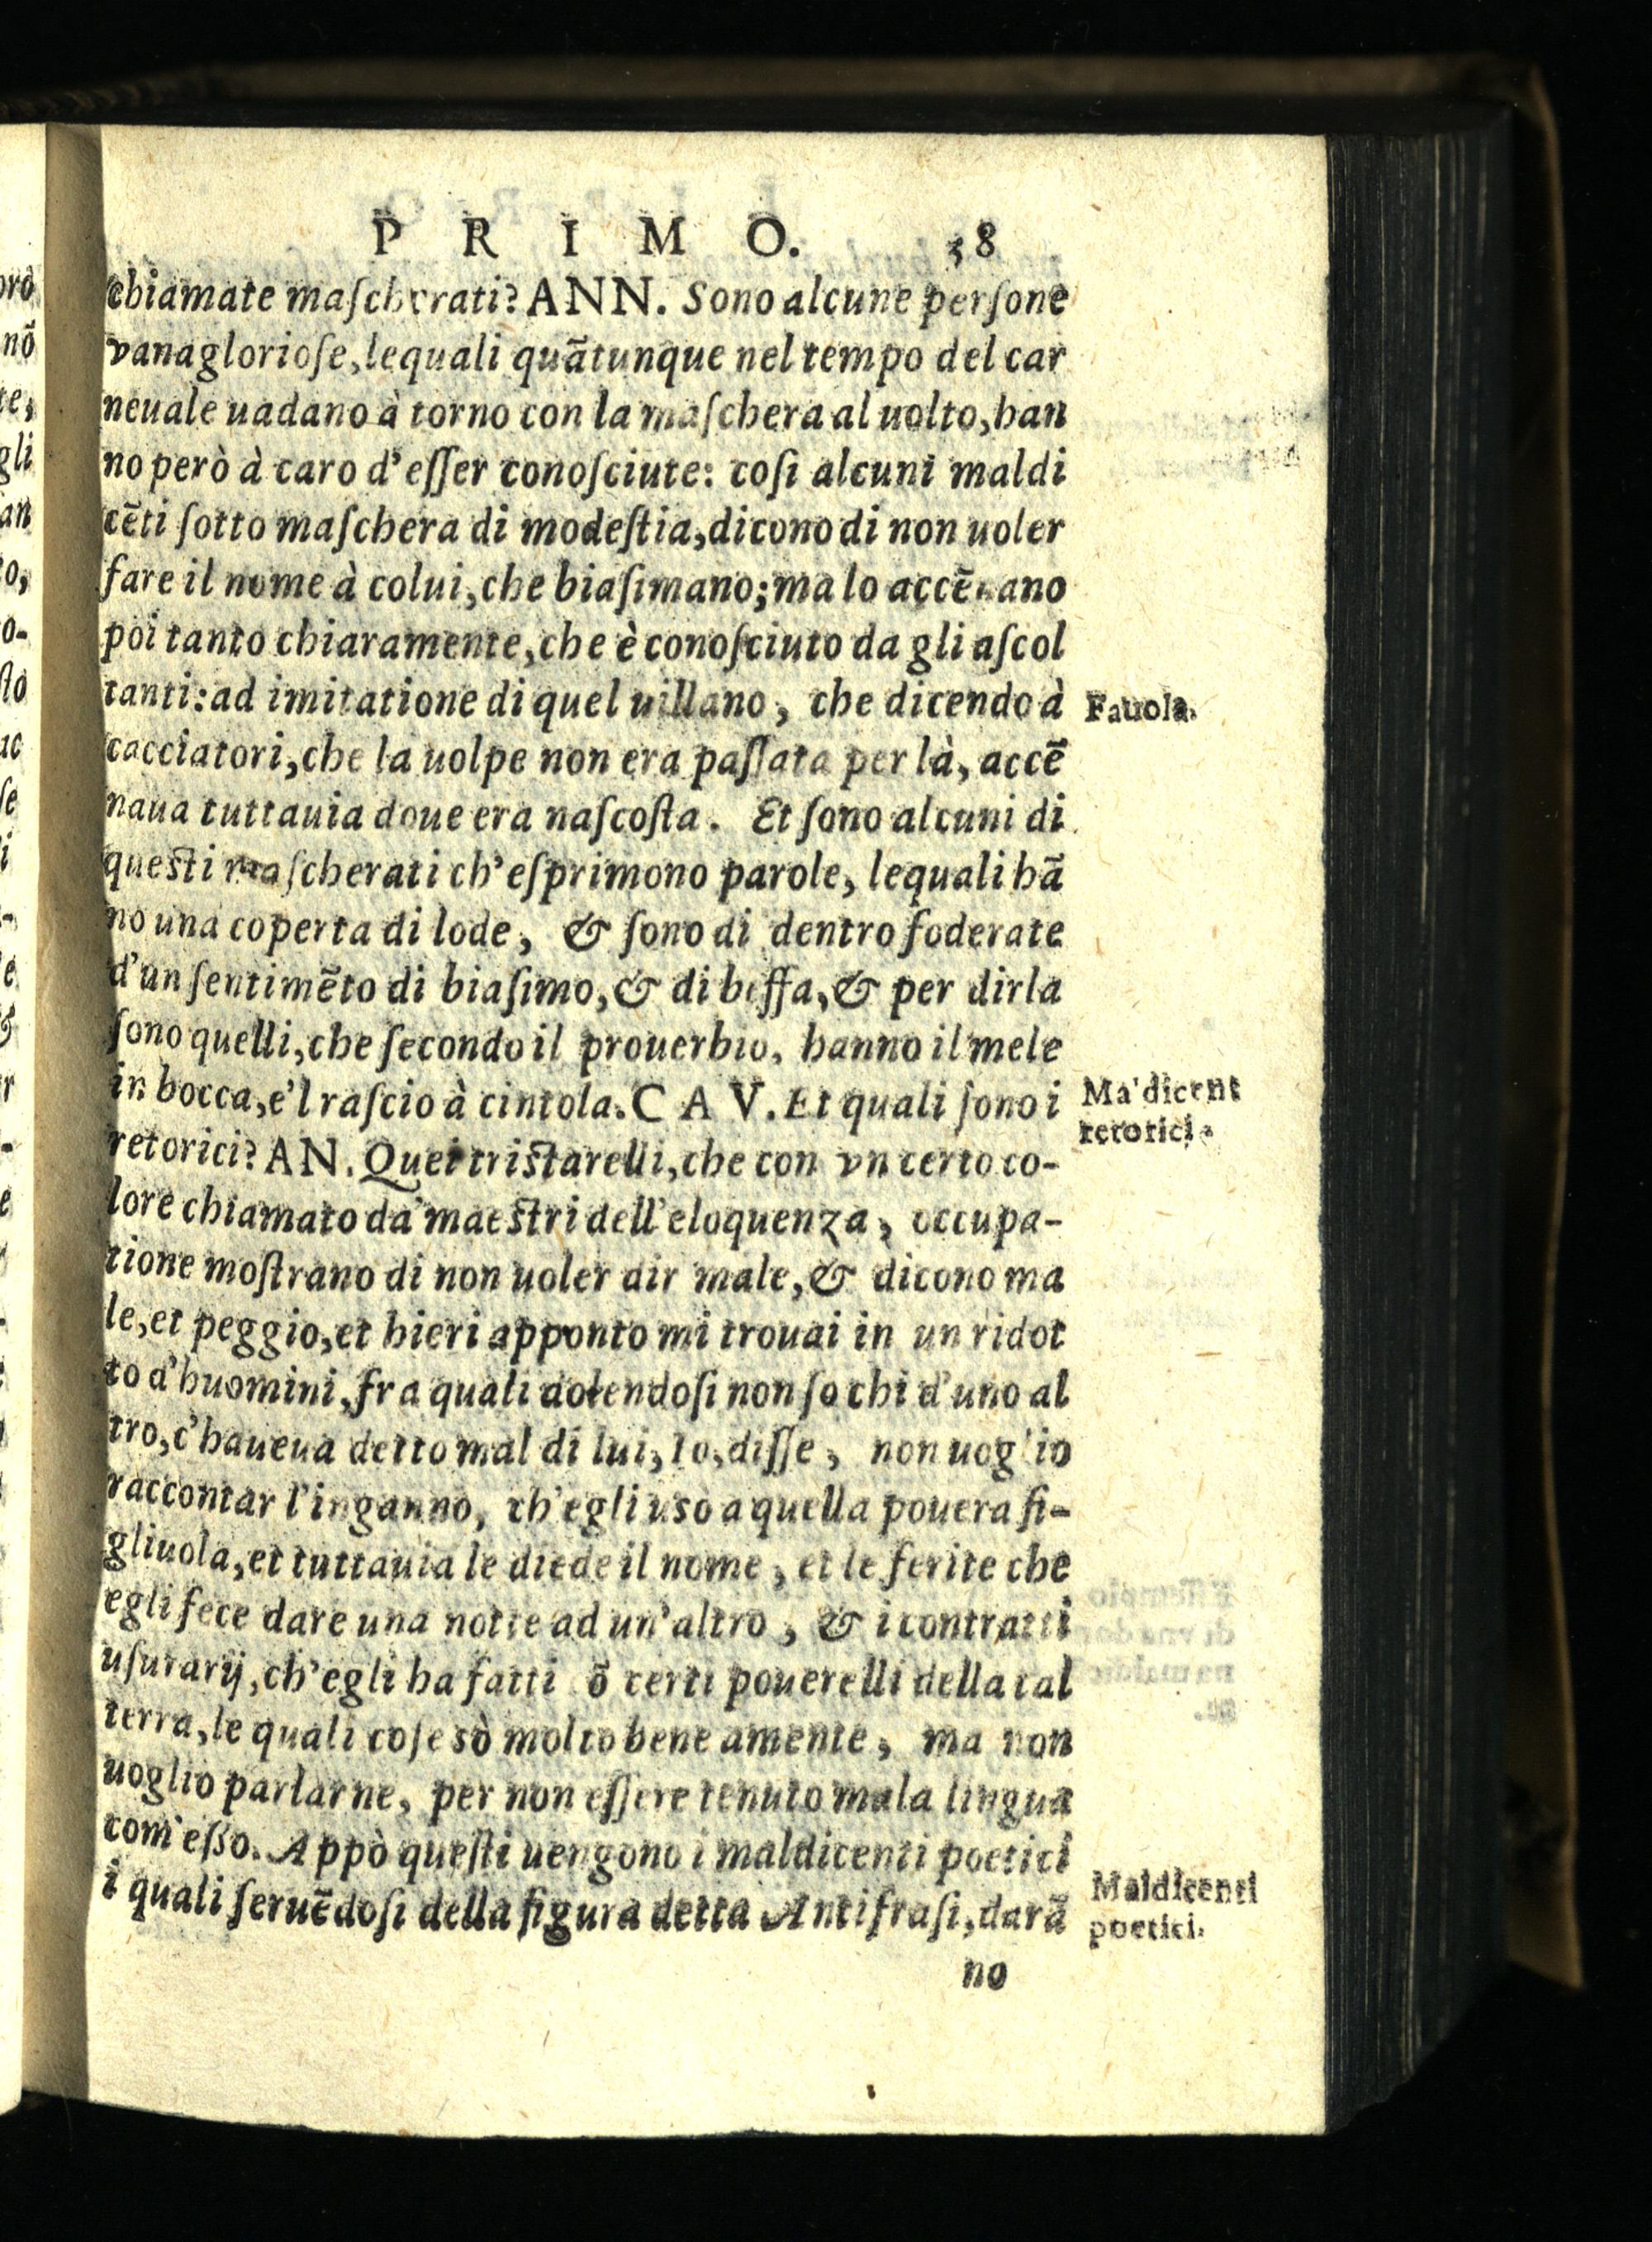 PRIMO. 38
chiamate maſcherati? ANN. Sono alcune perſone
vanaglorioſe, lequali quãtunque nel tempo del car
neuale uadano à torno con la maſchera al uolto, han
no però à caro d'eſſer conoſciute: coſi alcuni maldi
cẽti ſotto maſchera di modeſtia, dicono di non uoler
fare il nome à colui, che biaſimano; ma lo accẽnano
poi tanto chiaramente, che è conoſciuto da gli aſcol
tanti: ad imitatione di quel uillano, che dicendo à
Fauola.
cacciatori, che la uolpe non era paſſata per là, accẽ
naua tuttauia doue era naſcoſta. Et ſono alcuni di
queſti maſcherati ch'eſprimono parole, lequali hã
no una coperta di lode, & ſono di dentro foderate
d'un ſentimẽto di biaſimo, & di beffa, & per dirla
ſono quelli, che ſecondo il prouerbio, hanno il mele
in bocca, e'l raſcio à cintola. CAV. Et quali ſono i
Ma'dicent
retorici.
retorici? AN. Quei triſtarelli, che con vn certo co-
lore chiamato da' maeſtri dell'eloquenza, occupa-
tione moſtrano di non uoler dir male, & dicono ma
le, et peggio, et hieri apponto mi trouai in un ridot
to d'huomini, fra quali dolendoſi non ſo chi d'uno al
tro, c'haueua detto mal di lui, Io, diſſe, non uoglio
raccontar l'inganno, ch'egli uso a quella pouera fi-
gliuola, et tuttauia le diede il nome, et le ferite che
egli fece dare una notte ad un'altro, & i contratti
uſurarij, ch'egli ha fatti õ certi pouerelli della tal
terra, le quali coſe sò molto bene a mente, ma non
uoglio parlarne, per non eſſere tenuto mala lingua
com'eſſo. Appò queſti uengono i maldicenti poetici
i quali ſeruẽdoſi della figura detta Antifraſi, darã
Maldicenti
poetici.
no